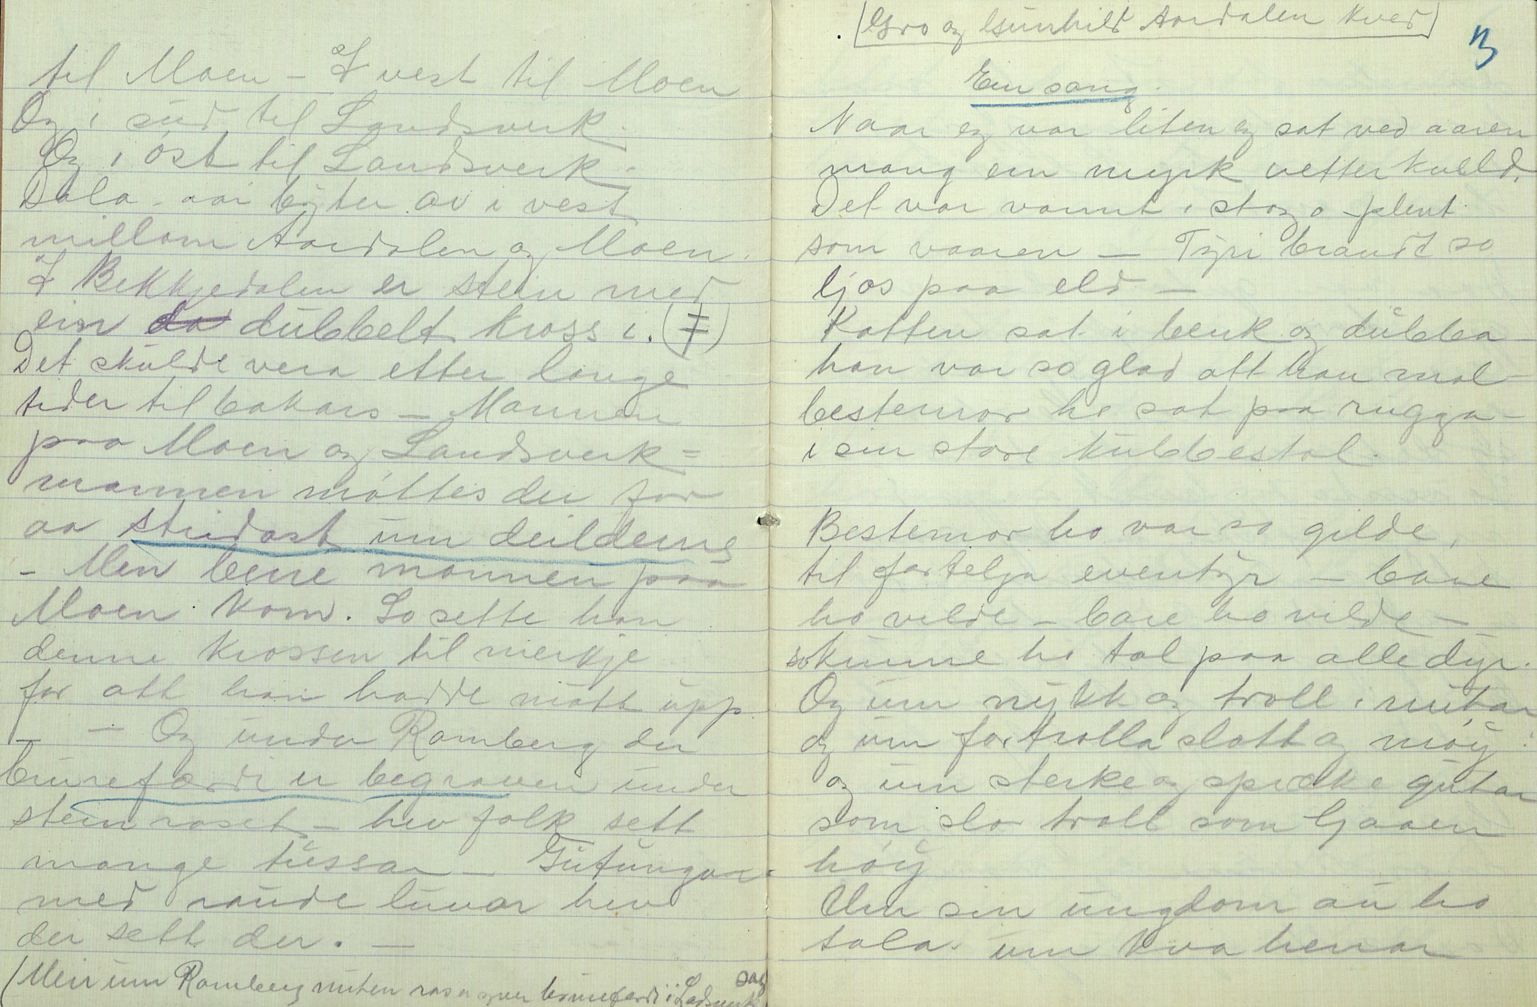 til Moen – I vest til Moen
Og i sud til Landsverk.
Og i øst til Landsverk.
Dala-aai byter av i vest
millom Aardalen og Moen.
I Bekkjedalen er stein med
ein do dubbelt kross i. (‡)
Det skulde vera etter lange
tider tilbakars – Mannen
paa Moen og Landsverk=
mannen møttes der for
aa stridast um deilderne
– Men berre mannen paa
Moen kom. So sette han
denne krossen til merkje
for att han hadde møtt upp
– – Og under Ramberg der
burefærdi er begraven under
steinroset – hev folk sett
mange tussar – Gutungar
med raude luvor hev
dei sett der. –
(Meir um Ramberg
(Gro og Gunhild Aardalen kved)
13
Ein song.
Naar eg var liten eg sat ved aaren
mang ein myrk vetterkveld.
Det var varmt i stog o plent
som vaaren – Tyri brandt so
ljos paa eld –
Katten sat i benk og dubba –
han var so glad att han mol –
bestemor ho sat paa rugga –
i sin store kubbestol.
Bestemor ho var so gilde,
til fortelja eventyr – bare
ho vilde – bare ho vilde –
so kunne ho tol paa alle dyr.
Og um nykk og troll i nutar
og um fortrolla slott og møy
og um sterke og spræke gutar
som slo troll som Gaaen
høy
Um sin ungdom au ho
tala um kva henar